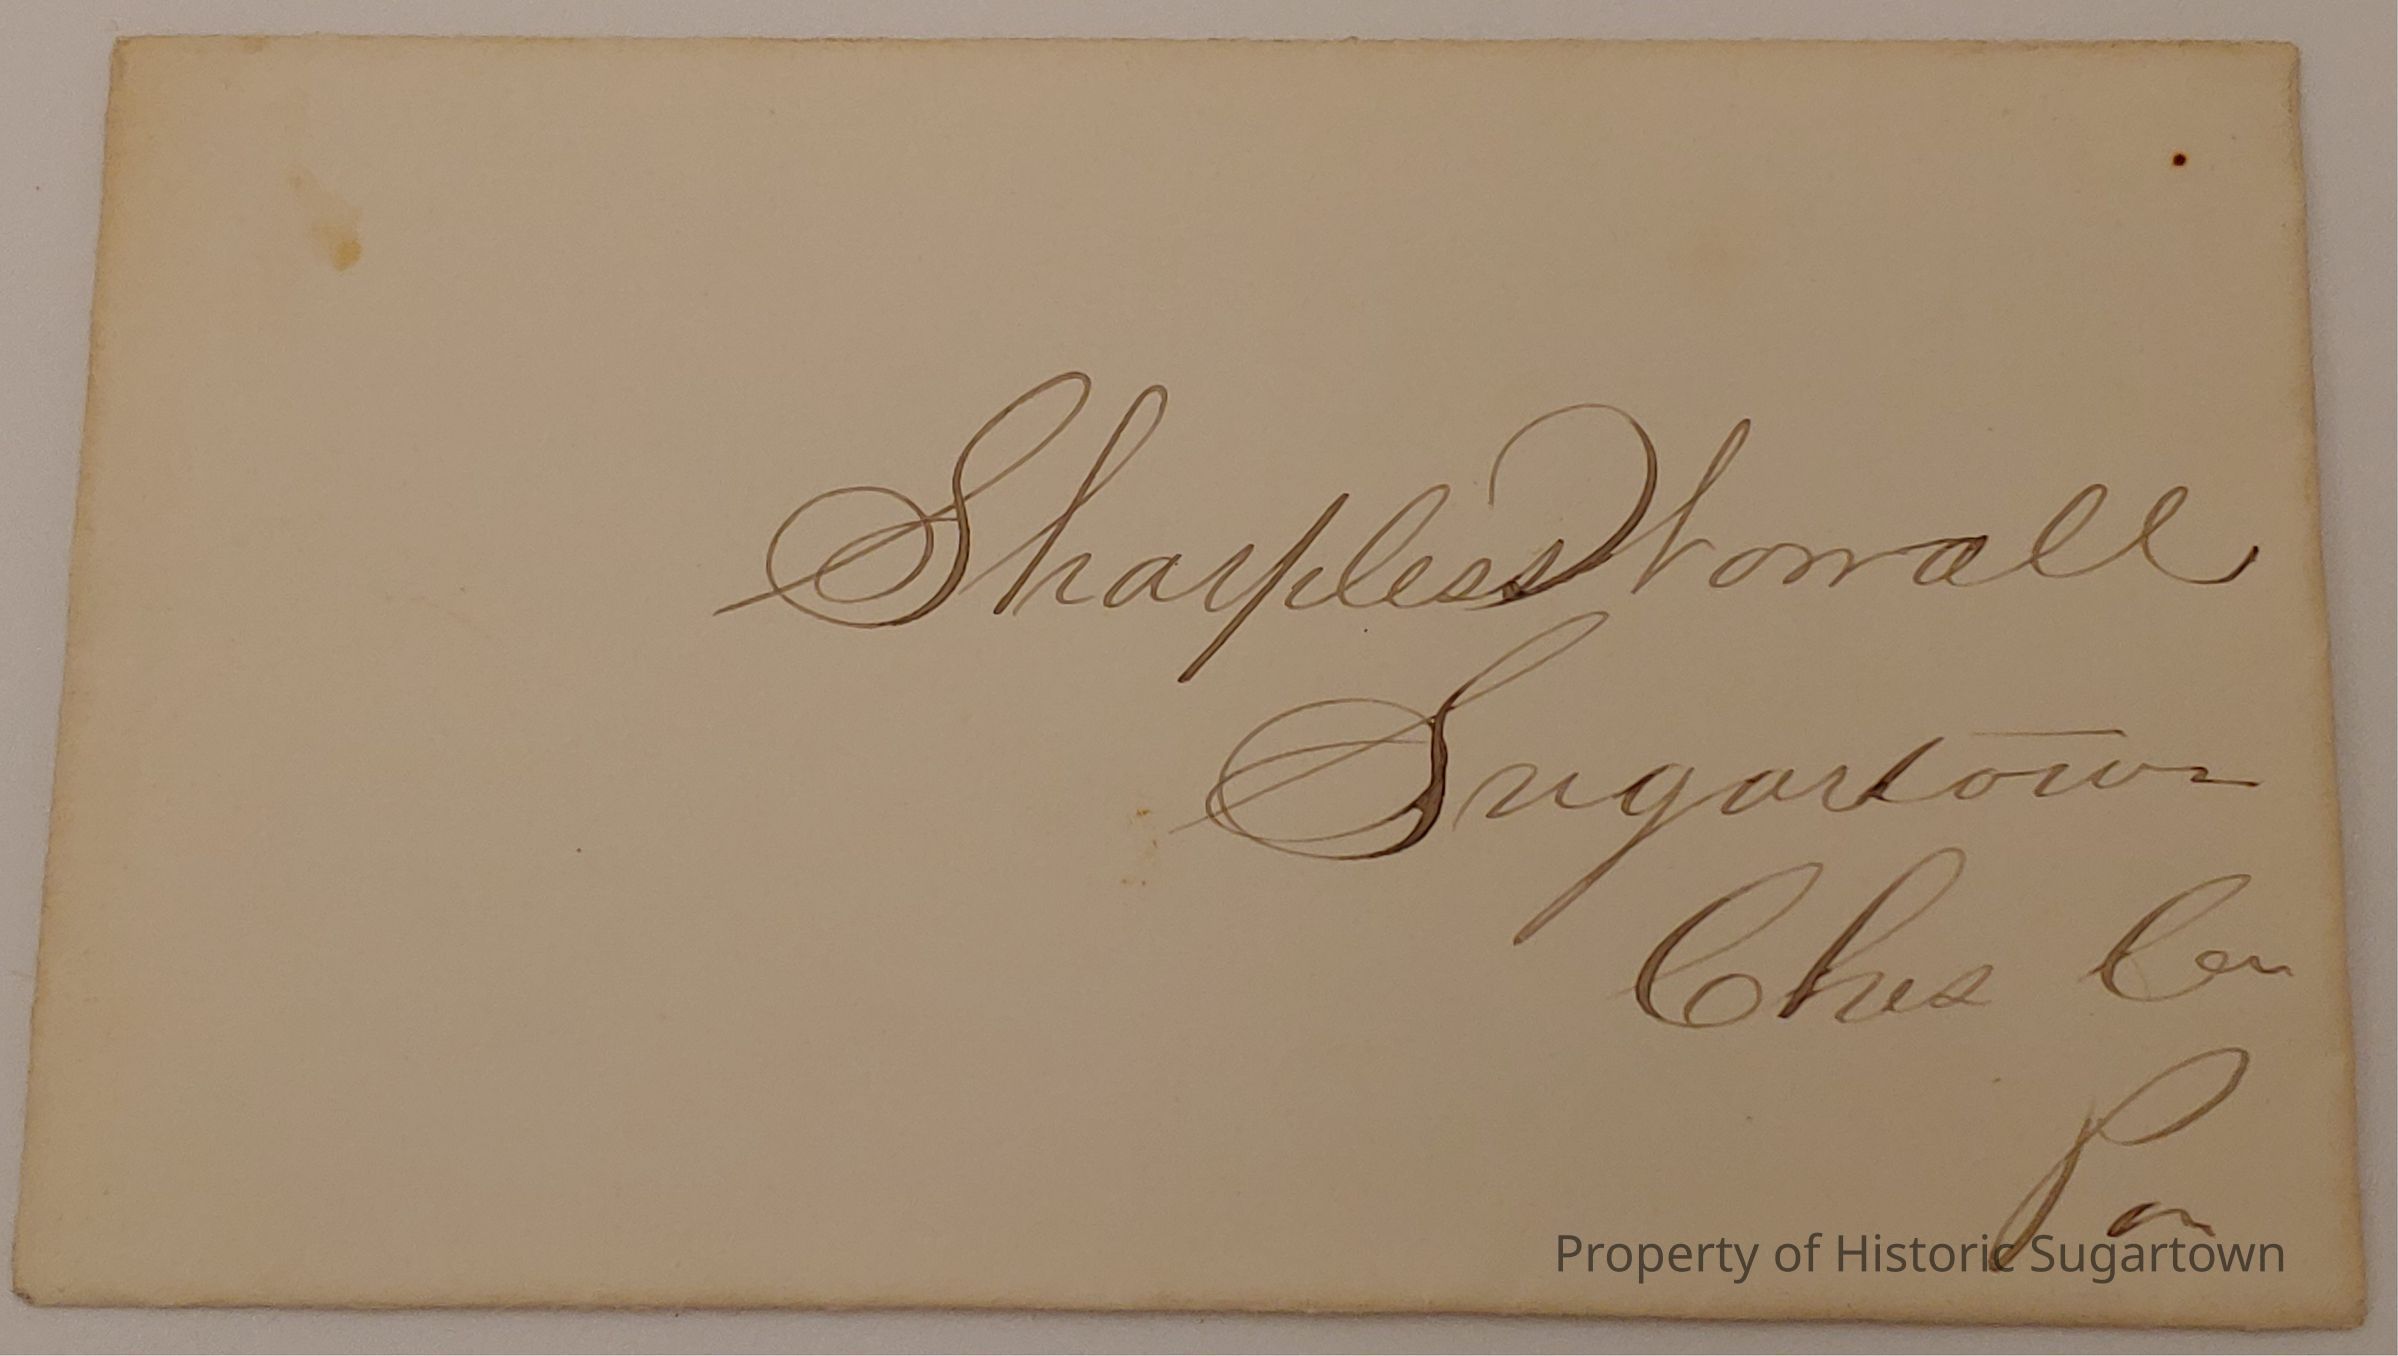 Sharpless Worrall
Sugartown
Ches Co
Pa
Property of Historic Sugartown